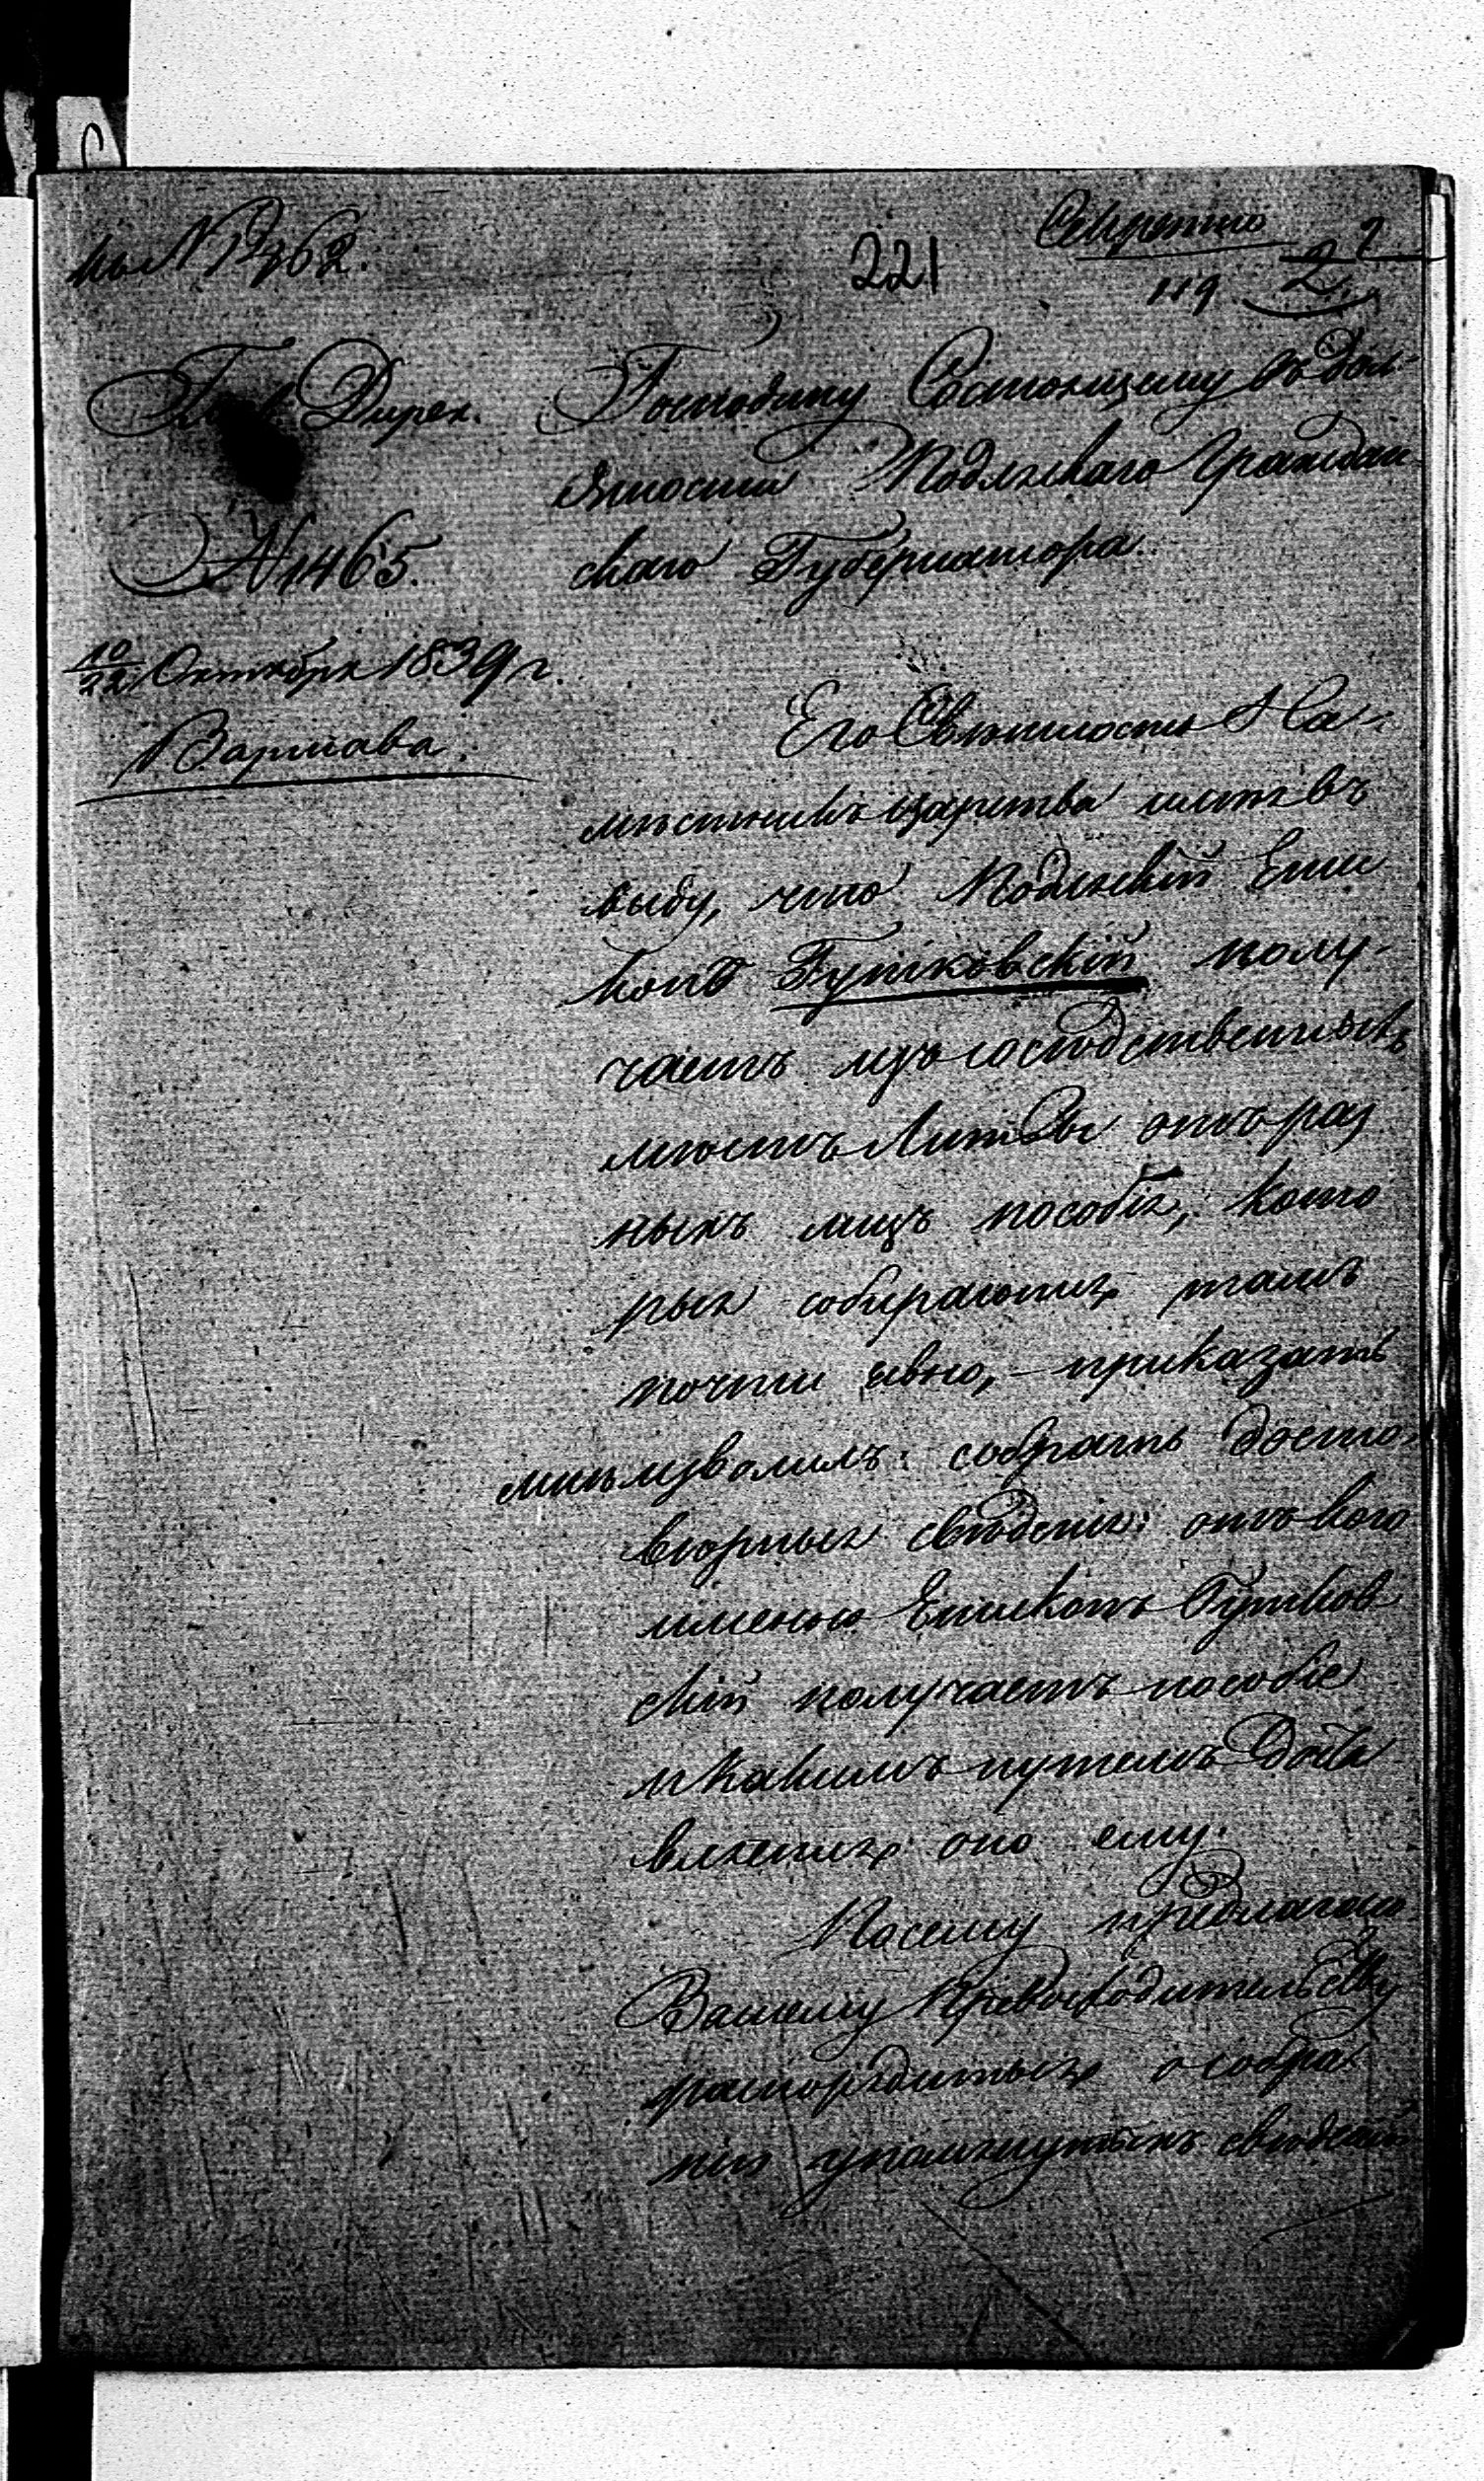 Секретно
по № 362.
221
119
2
Гл. Дирек.
№ 1465.
10/22 Октября 1839 г.
Варшава.
Господину Состоящему въ дол-
жности Подляскаго Граждан-
скаго Губернатора.
Его Свѣтлость На-
мѣстникъ Царства имѣя въ
виду, что Подляскій Епи
копъ Гутковскій полу-
чаетъ изъ господственныхъ
мѣстъ Литвы отъ раз
ныхъ лицъ пособія, кото
рыя собираются тамъ
почти явно, – приказать
мнѣ изволилъ: собрать досто-
вѣрныя свѣдѣнія: отъ кого
именно Епископъ Гутков
скій получаетъ пособіе
и какимъ путемъ доста
вляется оно ему.
Посему предлагаю
Вашему Превосходительству
распорядиться о собра-
ніи упомянутыхъ свѣдѣній